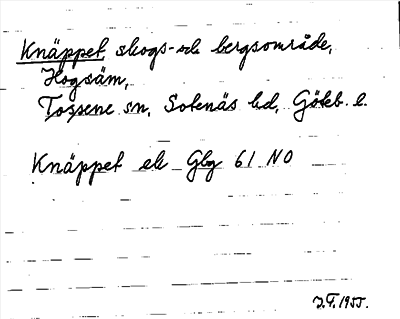 Knäppet, skogs- och bergsområde,
Hogsäm,
Tossene sn, Sotenäs hd, Göteb. l.
Knäppet ek Gbg 61 NO
J.F. 1955.